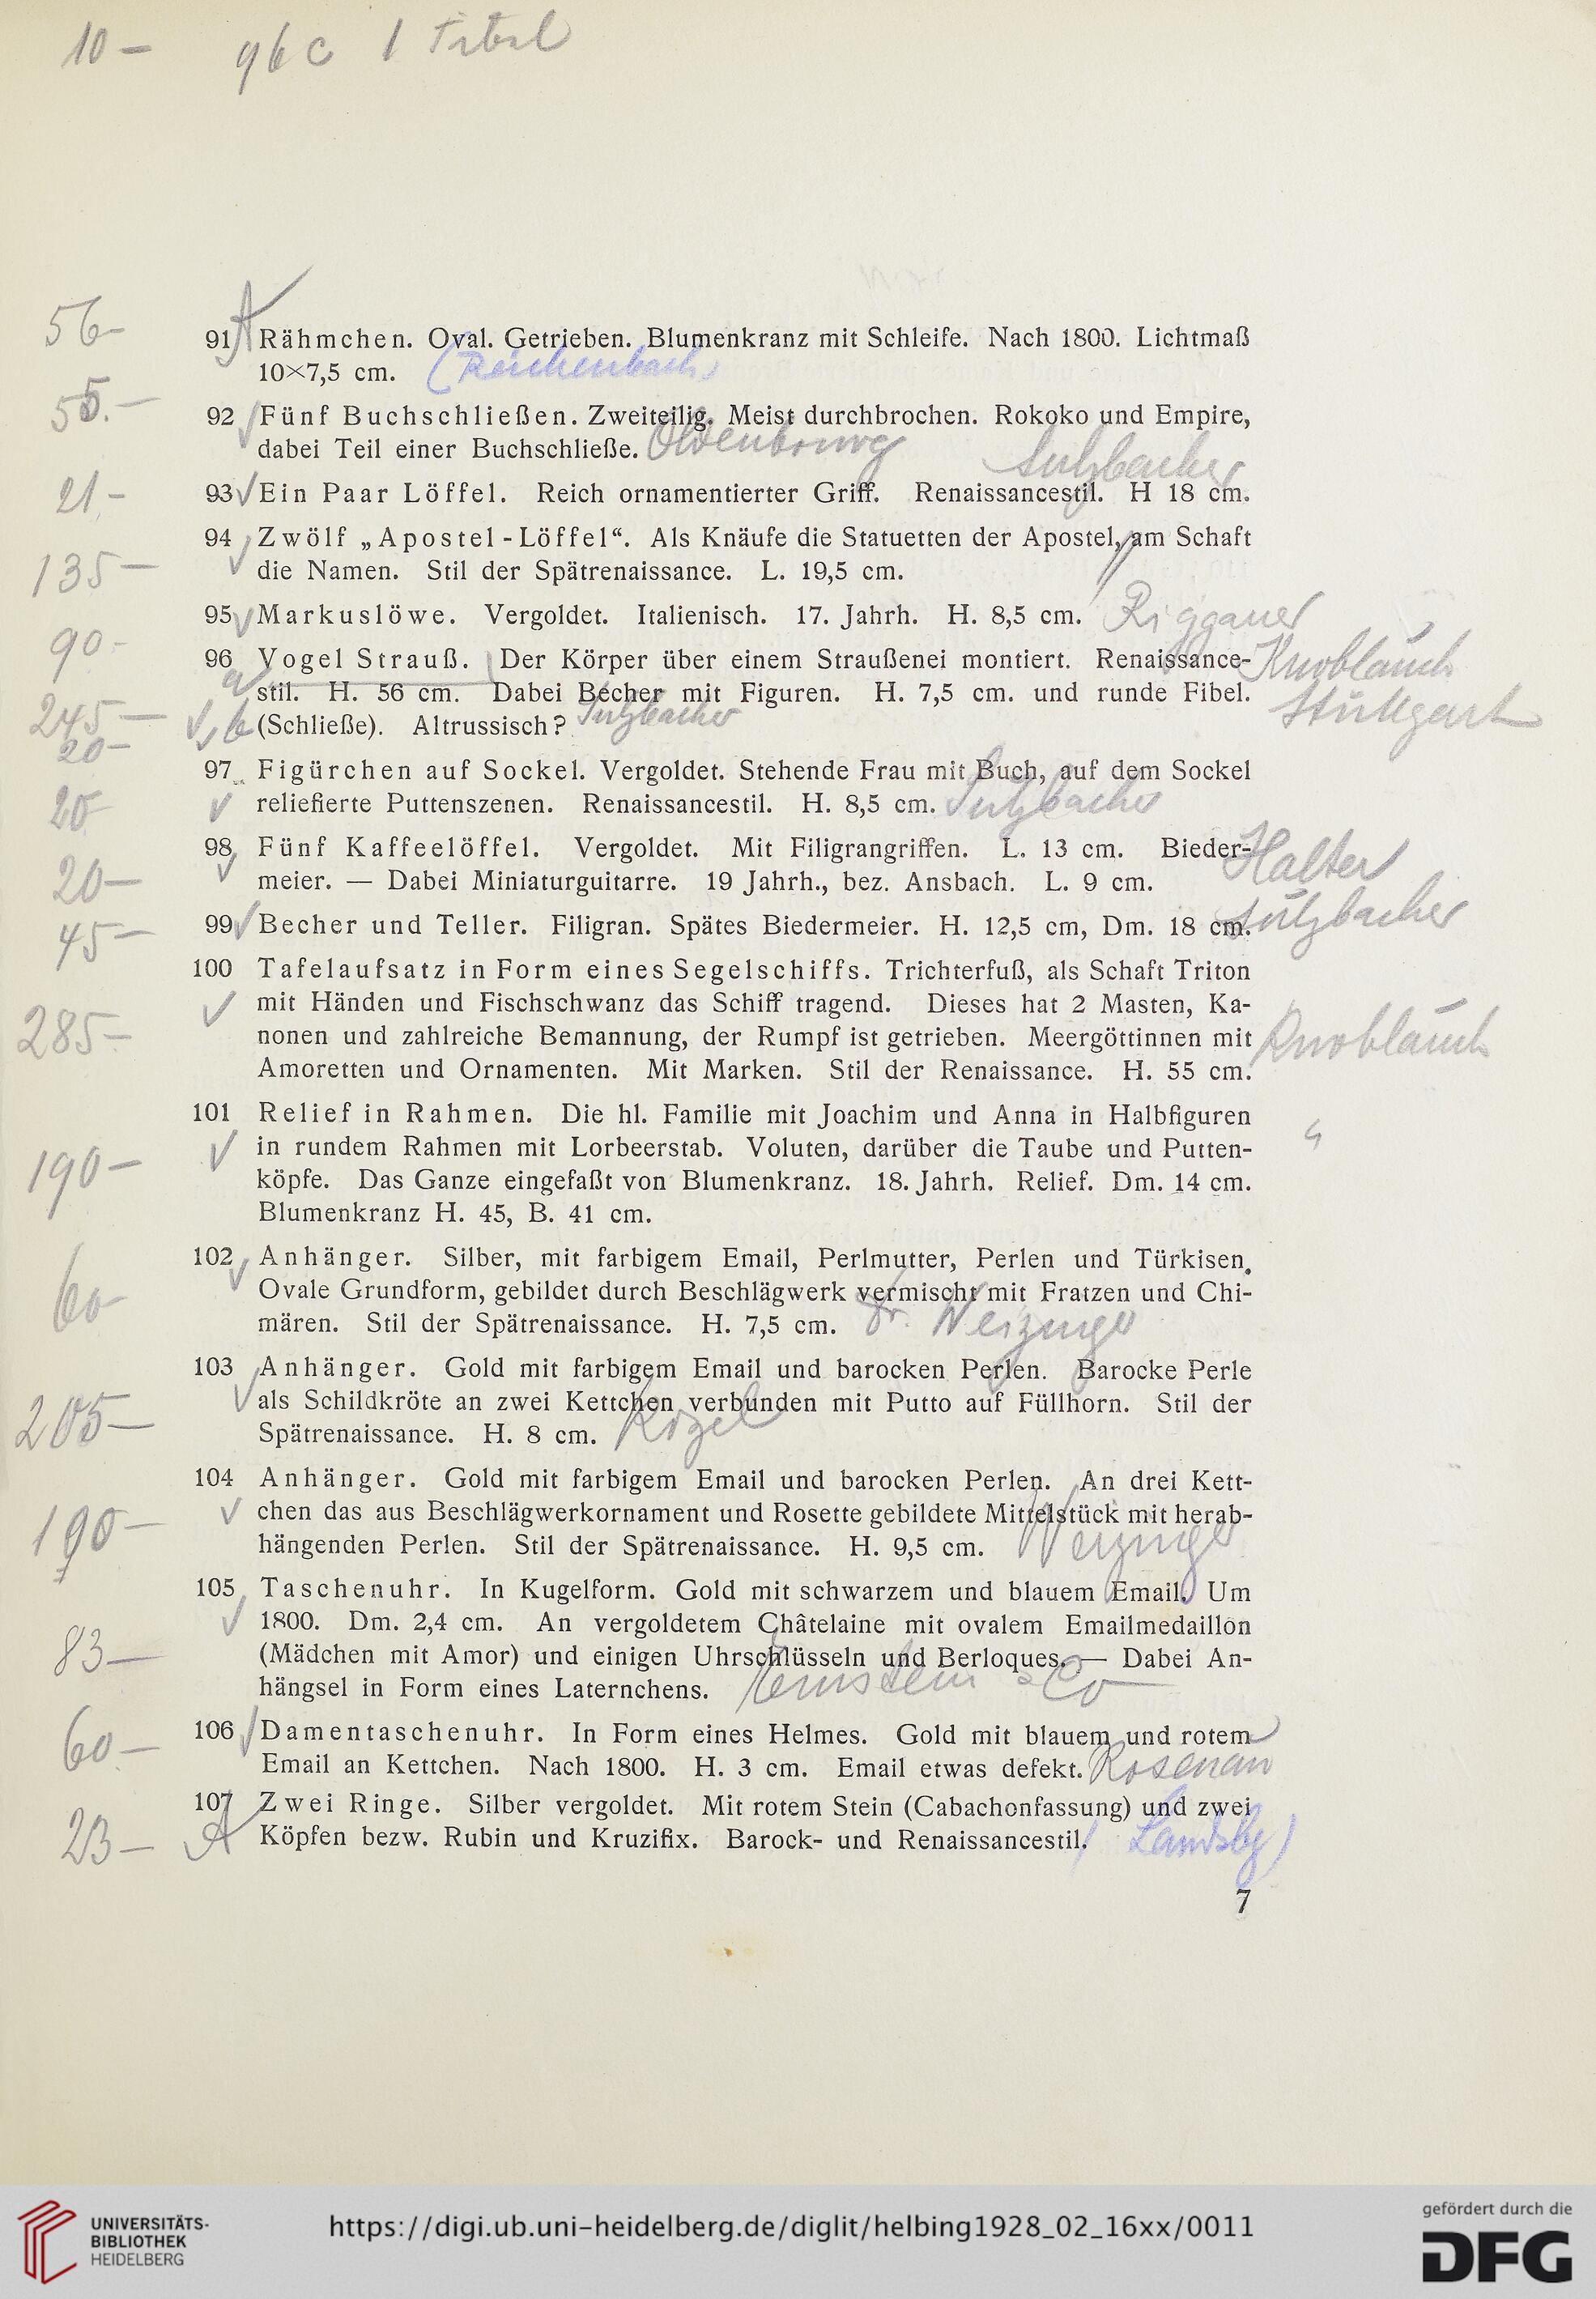 10 — 96 c 1
56-
91 Rähmchen. Oval. Getrieben. Blumenkranz mit Schleife. Nach 1800. Lichtmaß
10×7,5 cm. (Reichenbach)
55.—
92 Fünf Buchschließen. Zweiteilig. Meist durchbrochen. Rokoko und Empire,
dabei Teil einer Buchschließe. Oldenbourg
Sulzbacher
21.-
93 Ein Paar Löffel. Reich ornamentierter Griff. Renaissancestil. H 18 cm.
135—
94 Zwölf „Apostel-Löffel“. Als Knäufe die Statuetten der Apostel, am Schaft
die Namen. Stil der Spätrenaissance. L. 19,5 cm.
90.-
95 Markuslöwe. Vergoldet. Italienisch. 17. Jahrh. H. 8,5 cm. Riggauer
96 Vogel Strauß. Der Körper über einem Straußenei montiert. Renaissance- Knoblauch
a stil. H. 56 cm. Dabei Becher mit Figuren. H. 7,5 cm. und runde Fibel. Stuttgart
245—
b (Schließe). Altrussisch? Sulzbacher
20—
97 Figürchen auf Sockel. Vergoldet. Stehende Frau mit Buch, auf dem Sockel
20- reliefierte Puttenszenen. Renaissancestil. H. 8,5 cm. Sulzbacher
98 Fünf Kaffeelöffel. Vergoldet. Mit Filigrangriffen. L. 13 cm. Bieder- Halter
20— meier. — Dabei Miniaturguitarre. 19 Jahrh., bez. Ansbach. L. 9 cm.
45—
99 Becher und Teller. Filigran. Spätes Biedermeier. H. 12,5 cm, Dm. 18 cm. Sulzbacher
100 Tafelaufsatz in Form eines Segelschiffs. Trichterfuß, als Schaft Triton
mit Händen und Fischschwanz das Schiff tragend. Dieses hat 2 Masten, Ka-
285- nonen und zahlreiche Bemannung, der Rumpf ist getrieben. Meergöttinnen mit Knoblauch
Amoretten und Ornamenten. Mit Marken. Stil der Renaissance. H. 55 cm.
101 Relief in Rahmen. Die hl. Familie mit Joachim und Anna in Halbfiguren
190— in rundem Rahmen mit Lorbeerstab. Voluten, darüber die Taube und Putten-
köpfe. Das Ganze eingefaßt von Blumenkranz. 18. Jahrh. Relief. Dm. 14 cm.
Blumenkranz H. 45, B. 41 cm.
102 Anhänger. Silber, mit farbigem Email, Perlmutter, Perlen und Türkisen.
60- Ovale Grundform, gebildet durch Beschlägwerk vermischt mit Fratzen und Chi-
mären. Stil der Spätrenaissance. H. 7,5 cm. Dr.
103 Anhänger. Gold mit farbigem Email und barocken Perlen. Barocke Perle
205— als Schildkröte an zwei Kettchen verbunden mit Putto auf Füllhorn. Stil der
Spätrenaissance. H. 8 cm.
104 Anhänger. Gold mit farbigem Email und barocken Perlen. An drei Kett-
190— chen das aus Beschlägwerkornament und Rosette gebildete Mittelstück mit herab-
hängenden Perlen. Stil der Spätrenaissance. H. 9,5 cm.
105 Taschenuhr. In Kugelform. Gold mit schwarzem und blauem Email. Um
1800. Dm. 2,4 cm. An vergoldetem Châtelaine mit ovalem Emailmedaillon
83— (Mädchen mit Amor) und einigen Uhrschlüsseln und Berloques. — Dabei An-
hängsel in Form eines Laternchens. & Co
106 Damentaschenuhr. In Form eines Helmes. Gold mit blauem und rotem
60— Email an Kettchen. Nach 1800. H. 3 cm. Email etwas defekt. Rosenau
107 Zwei Ringe. Silber vergoldet. Mit rotem Stein (Cabachonfassung) und zwei
23— A Köpfen bezw. Rubin und Kruzifix. Barock- und Renaissancestil. (Landsbg)
7
UNIVERSITÄTS-
BIBLIOTHEK
HEIDELBERG
https://digi.ub.uni-heidelberg.de/diglit/helbing1928_02_16xx/0011
gefördert durch die
DFG